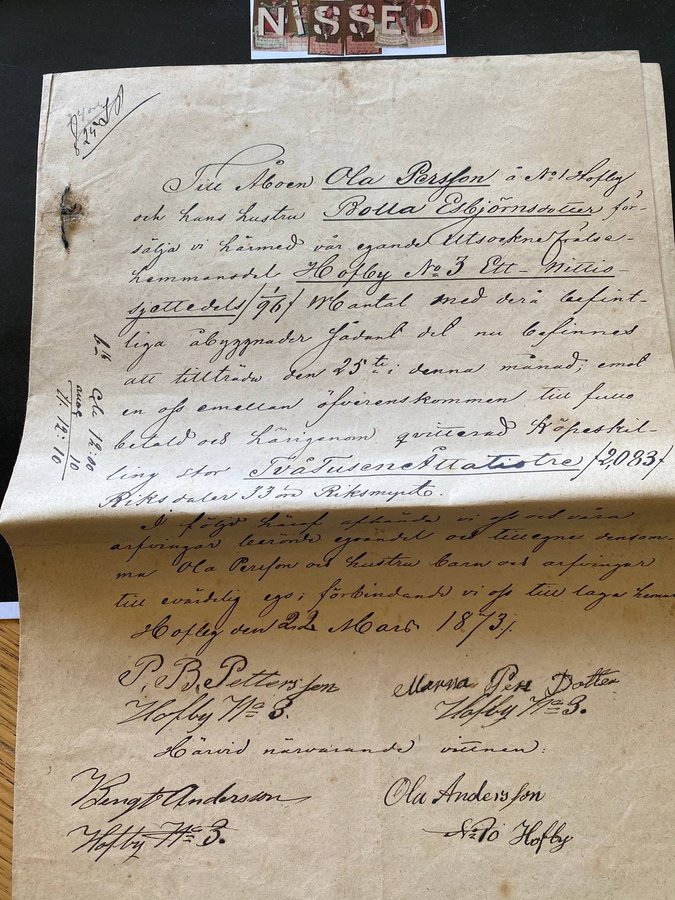 NISSED
Till Åboen Ola Persson å No 1 Hofby
och hans hustru Bolla Esbjörnsdotter för-
sälja vi härmed vår egande Utsockne Frälse-
hemmansdel Hofby No 3 Ett- Nittio-
sjettedels /1/96/ Mantal med derå befint-
liga åbyggnader sådant det nu befinnes
att tillträda den 25te i denna månad; emot
en oss emellan öfverenskommen till fullo
betald och härigenom qvitterad Köpeskil-
ling stor Två Tusen Åttatiotre /2,083/
Riksdaler 33 öre Riksmynt.
I följd häraf afhända vi oss och våra
arfvingar berörde egendel och tillegne densam-
ma Ola Persson och hustru barn och arfvingar
till evärdelig ego; förbindande vi oss till laga hemul
Hofby den 22 Mars 1873.
P. B. Pettersson
Hofby No 3.
Marna Pers Dotter
Hofby No 3.
Härvid närvarande vittnen:
Bengt Andersson
Hofby No 3.
Ola Andersson
No 10 Hofby
12:00
10
12:10